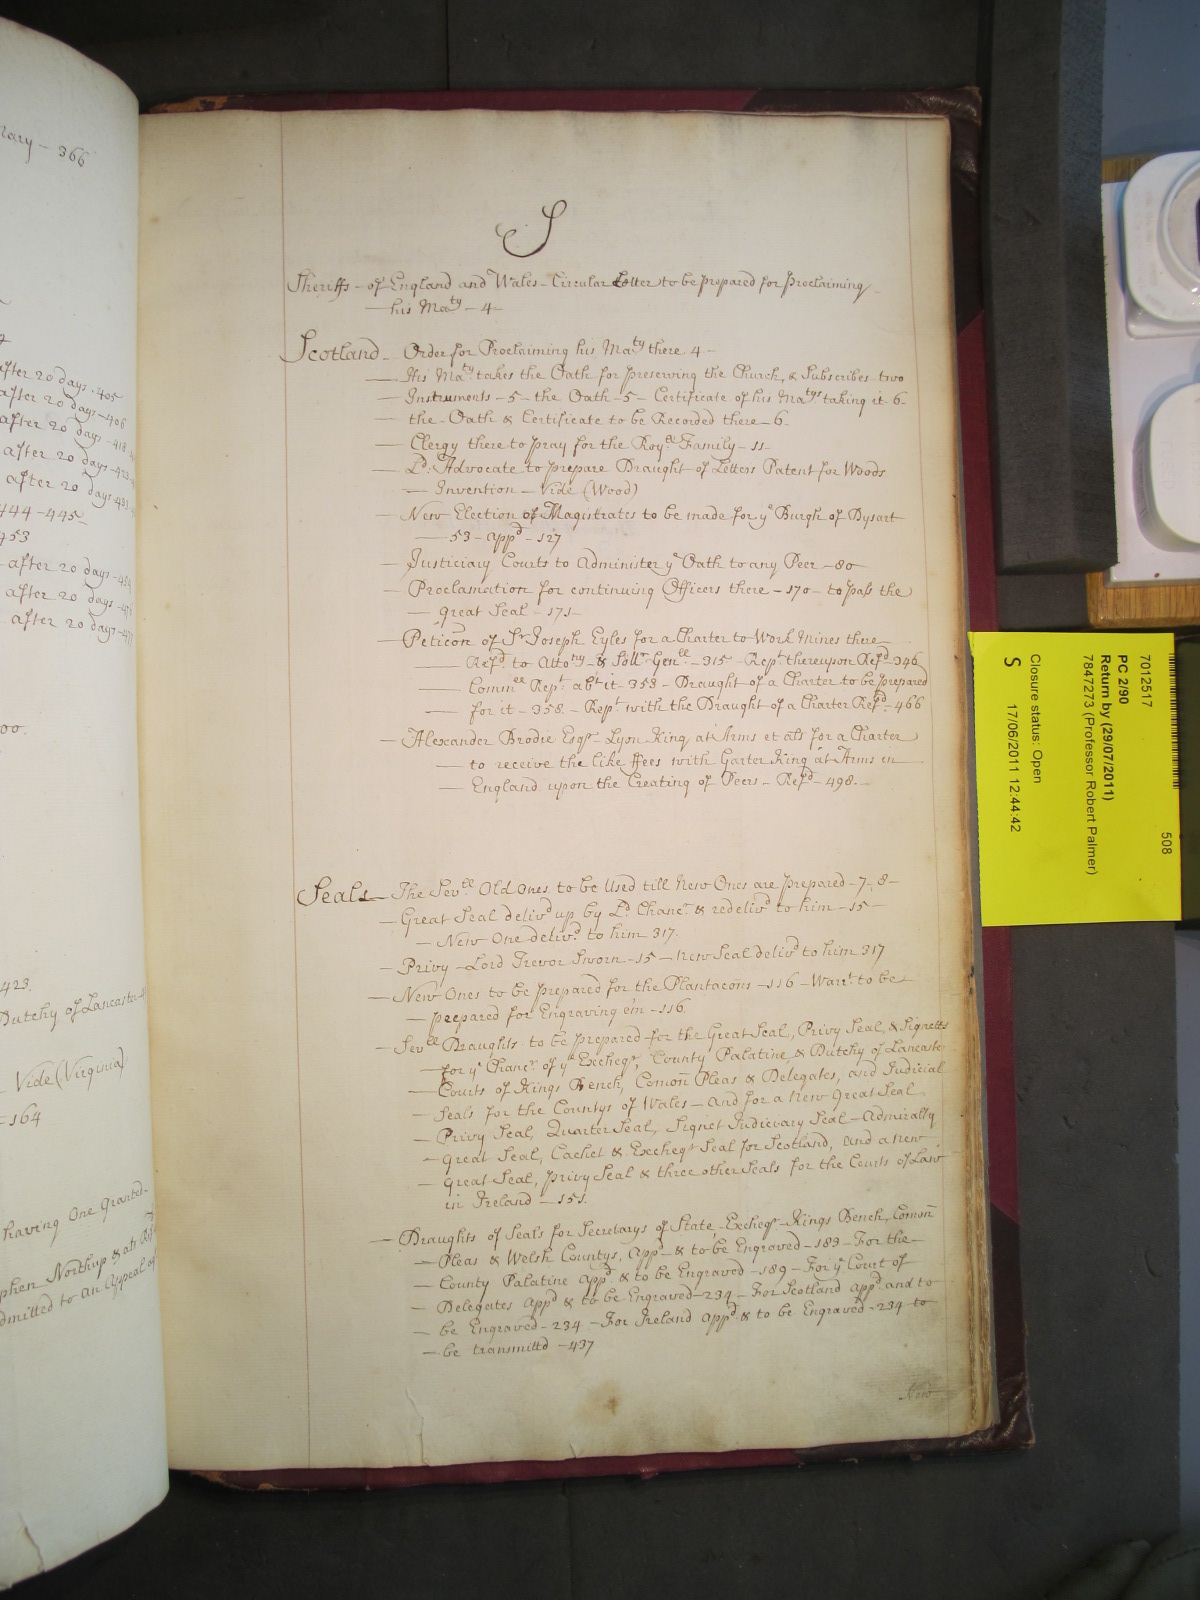 rary - 366
after 20 days - 405
after 20 days - 406
after 20 days - 418
after 20 days - 423
after 20 days - 431
444 - 445
453
after 20 days
after 20 days
after 20 days
00.
423.
Dutchy of Lancaster
Vide (Virginia)
- 164
having One Granted
phen Northup & als
dmitted to an Appeal
S
Sheriffs - of England and Wales - Circular Letter to be prepared for Proclaiming
his Maty - 4 -
Scotland - Order for Proclaiming his Maty there 4 -
His Maty takes the Oath for preserving the Church, & Subscribes two
Instruments - 5 - the Oath - 5 - Certificate of his Matys taking it - 6 -
the Oath & Certificate to be Recorded there - 6.
Clergy there to pray for the Royll Family - 11
Ld. Advocate to prepare Draught of Letters Patent for Woods
Invention - Vide (Wood)
New Election of Magistrates to be made for ye Burgh of Dysart
53 - appd - 127
Justiciary Courts to Administer ye Oath to any Peer - 80
Proclamation for continuing Officers there - 170 - to pass the
great Seal - 171 -
Peticon of Sr Joseph Eyles for a Charter to Work Mines there
Refd to Attorny & Sollr Genll - 315 - Rept thereupon Refd - 346
Commee Rept abt it - 358 - Draught of a Charter to be prepared
for it - 358 - Rept with the Draught of a Charter Refd - 466
Alexander Brodie Esqr Lyon King at Arms et als for a Charter
to receive the like ffees with Garter King at Arms in
England upon the Creating of Peers - Refd - 498 -
Seals - The Sevll Old Ones, to be Used till New Ones are prepared - 7 - 8 -
Great Seal delivd up by Ld Chancr & redelivd to him - 15 -
New One delivd to him 317.
Privy - Lord Trevor Sworn - 15 - new Seal delivd to him 317
New Ones to be prepared for the Plantacons - 116 - Warrt to be
prepared for Engraving em - 116
Sevll Draughts to be prepared for the Great Seal, Privy Seal, & Signetts
for ye Chancr of ye Excheqr, County Palatine, & Dutchy of Lancaster
Courts of Kings Bench, Comon Pleas & Delegates, and Judicial
Seals for the Countys of Wales - and for a New Great Seal
Privy Seal, Quarter Seal, Signet Judicvary Seal - Admiralty
great Seal, Cachet & Excheqr Seal for Scotland, and a new
great Seal, privy Seal & three other Seals for the Courts of Law
in Ireland - 151
Draughts of Seals for Secretarys of State, Excheqr - Kings Bench, Comon
Pleas & Welsh Countys, appd & to be Engraved - 189 - For the
County Palatine appd & to be Engraved - 189 - For ye Court of
Delegates appd & to be Engraved - 234 - For Scotland appd and to
be Engraved - 234 - For Ireland appd & to be Engraved - 234 to
be transmittd - 437
New
7012517
508
PC 2/90
Return by (29/07/2011)
7847273 (Professor Robert Palmer)
Closure status: Open
S 17/06/2011 12:44:42